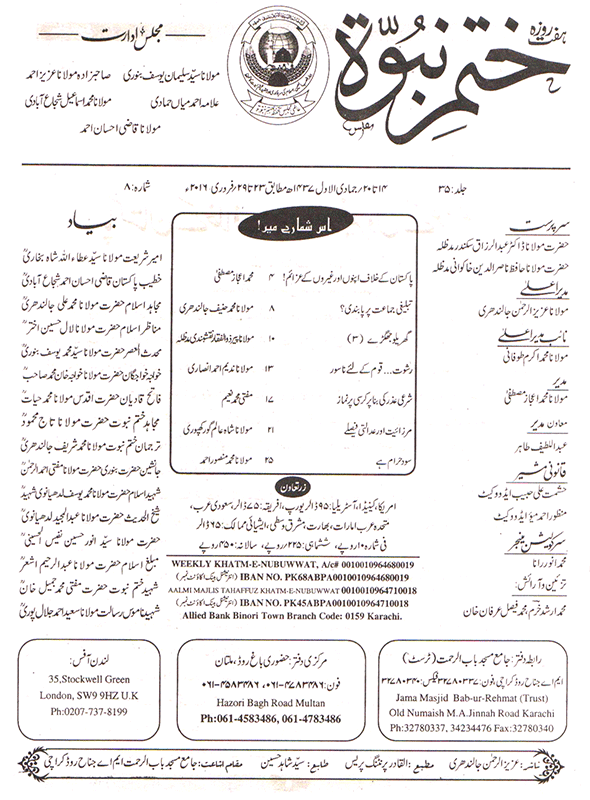 ہفت روزہ
ختم نبوۃ
مجلس ادارت
مولانا سید سلیمان یوسف بنوری صاحبزادہ مولانا عزیز احمد
علامہ احمد میاں حمادی مولانا محمد اسماعیل شجاع آبادی
مولانا قاضی احسان احمد
جلد: ۳۵ ۱۴ تا ۲۰/ جمادی الاول ۱۴۳۷ھ مطابق ۲۳ تا ۲۹/ فروری ۲۰۱۶ء شمارہ: ۸
سرپرست
حضرت مولانا ڈاکٹر عبدالرزاق سکندر مدظلہ
حضرت مولانا حافظ ناصر الدین خاکوانی مدظلہ
مدیر اعلیٰ
مولانا عزیز الرحمٰن جالندھری
نائب مدیر اعلیٰ
مولانا محمد اکرم طوفانی
مدیر
مولانا محمد اعجاز مصطفیٰ
معاون مدیر
عبداللطیف طاہر
قانونی مشیر
حشمت علی حبیب ایڈووکیٹ
منظور احمد میؤ ایڈووکیٹ
سرکولیشن منیجر
محمد انور رانا
تزئین و آرائش:
محمد ارشد خرم، محمد فیصل عرفان خان
اس شمارے میں!
پاکستان کے خلاف اپنوں اور غیروں کے عزائم! ۴ محمد اعجاز مصطفیٰ
تبلیغی جماعت پر پابندی؟ ۸ مولانا محمد حنیف جالندھری
گھریلو جھگڑے (۳) ۱۰ مولانا پیر ذوالفقار نقشبندی مدظلہ
رشوت... قوم کے لئے ناسور ۱۳ مولانا ندیم احمد انصاری
شرعی عذر کی بنا پر کرسی پر نماز ۱۷ مفتی محمد نعیم
مرزائیت اور عدالتی فیصلے ۲۱ مولانا شاہ عالم گورکھپوری
سود حرام ہے ۲۵ مولانا محمد منصور احمد
زرتعاون
امریکا، کینیڈا، آسٹریلیا: ۹۵ ڈالر یورپ، افریقہ: ۷۵ ڈالر، سعودی عرب،
متحدہ عرب امارات، بھارت، مشرق وسطیٰ، ایشیائی ممالک: ۶۵ ڈالر
فی شمارہ ۱۰ روپے، ششماہی: ۲۲۵ روپے، سالانہ: ۴۵۰ روپے
WEEKLY KHATM-E-NUBUWWAT, A/c# 0010010964680019
IBAN NO. PK68ABPA0010010964680019 (انٹرنیشنل بینک اکاؤنٹ نمبر)
AALMI MAJLIS TAHAFFUZ KHATM-E-NUBUWWAT 0010010964710018
IBAN NO. PK45ABPA0010010964710018 (انٹرنیشنل بینک اکاؤنٹ نمبر)
Allied Bank Binori Town Branch Code: 0159 Karachi.
بیاد
امیر شریعت مولانا سید عطاء اللہ شاہ بخاریؒ
خطیب پاکستان قاضی احسان احمد شجاع آبادیؒ
مجاہد اسلام حضرت مولانا محمد علی جالندھریؒ
مناظر اسلام حضرت مولانا لال حسین اخترؒ
محدث العصر حضرت مولانا سید محمد یوسف بنوریؒ
خواجہ خواجگان حضرت مولانا خواجہ خان محمد صاحبؒ
فاتح قادیان حضرت اقدس مولانا محمد حیاتؒ
مجاہد ختم نبوت حضرت مولانا تاج محمودؒ
ترجمان ختم نبوت حضرت مولانا محمد شریف جالندھریؒ
جانشین حضرت بنوری حضرت مولانا مفتی احمد الرحمٰنؒ
شہید اسلام حضرت مولانا محمد یوسف لدھیانوی شہیدؒ
شیخ الحدیث حضرت مولانا عبدالمجید لدھیانویؒ
حضرت مولانا سید انور حسین نفیس الحسینیؒ
مبلغ اسلام حضرت مولانا عبدالرحیم اشعرؒ
شہید ختم نبوت حضرت مفتی محمد جمیل خانؒ
شہید ناموس رسالت مولانا سعید احمد جلال پوریؒ
رابطہ دفتر: جامع مسجد باب الرحمت (ٹرسٹ)
ایم اے جناح روڈ کراچی، فون: ۳۲۷۸۰۳۳۷ فیکس: ۳۲۷۸۰۳۴۰
Jama Masjid Bab-ur-Rehmat (Trust)
Old Numaish M.A.Jinnah Road Karachi
Ph:32780337, 34234476 Fax:32780340
مرکزی دفتر: حضوری باغ روڈ، ملتان
فون: ۰۶۱-۴۷۸۳۴۸۶، ۰۶۱-۴۵۸۳۴۸۶
Hazori Bagh Road Multan
Ph:061-4583486, 061-4783486
لندن آفس:
35,Stockwell Green
London, SW9 9HZ U.K
Ph:0207-737-8199
ناشر: عزیز الرحمٰن جالندھری مطبع: القادر پرنٹنگ پریس طابع: سید شاہد حسین مقام اشاعت: جامع مسجد باب الرحمت ایم اے جناح روڈ کراچی